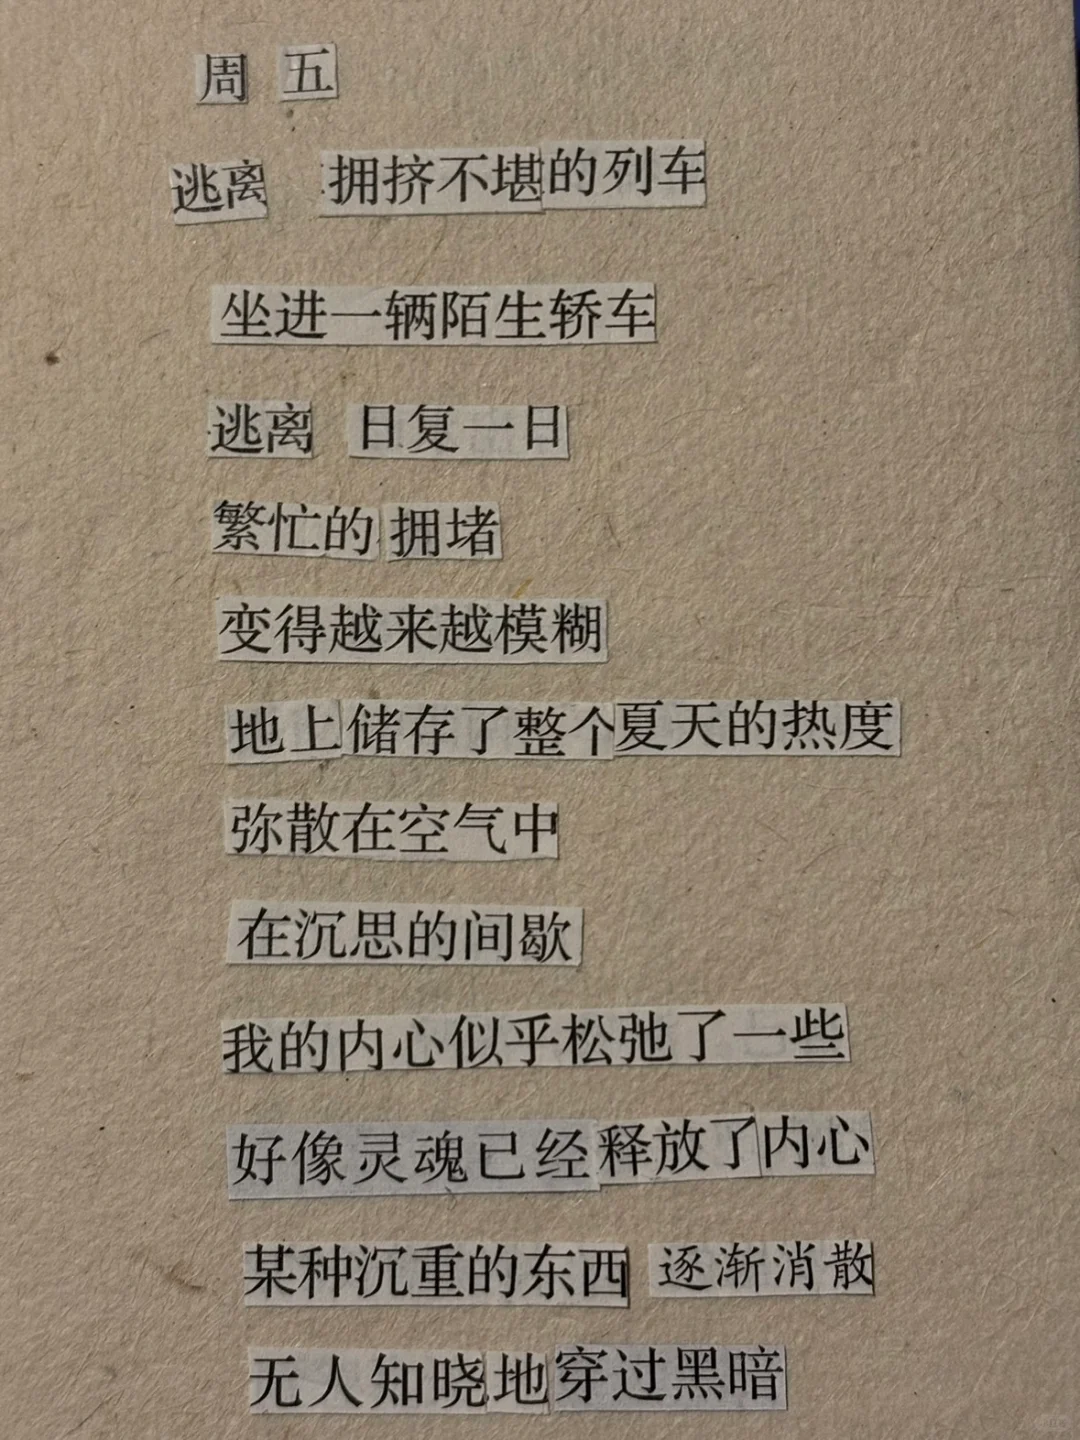 周 五
逃离 拥挤不堪的列车
坐进一辆陌生轿车
逃离 日复一日
繁忙的 拥堵
变得越来越模糊
地上储存了整个夏天的热度
弥散在空气中
在沉思的间歇
我的内心似乎松弛了一些
好像灵魂已经释放了内心
某种沉重的东西 逐渐消散
无人知晓地穿过黑暗